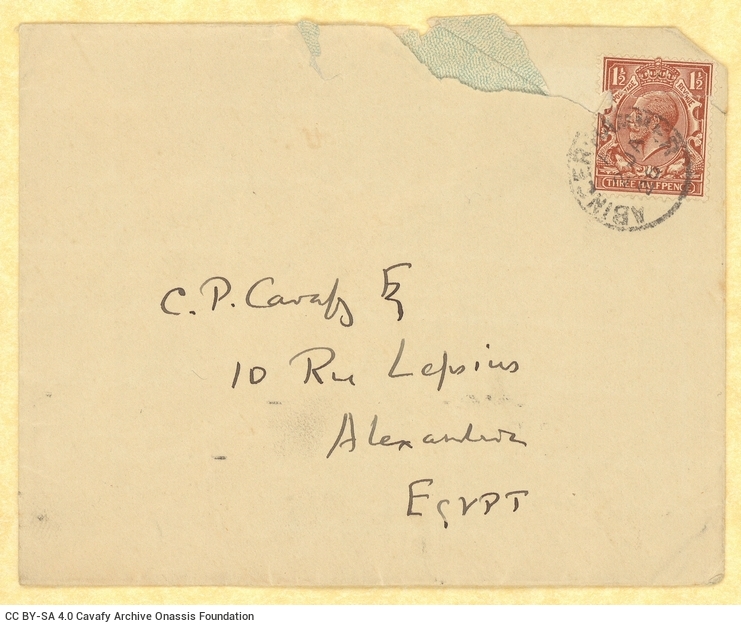 1½ 1½
POSTAGE REVENUE
THREE HALFPENCE
ABINGER HAMMER
JA
C. P. Cavafy Eq
10 Rue Lepsius
Alexandria
EGYPT
CC BY-SA 4.0 Cavafy Archive Onassis Foundation